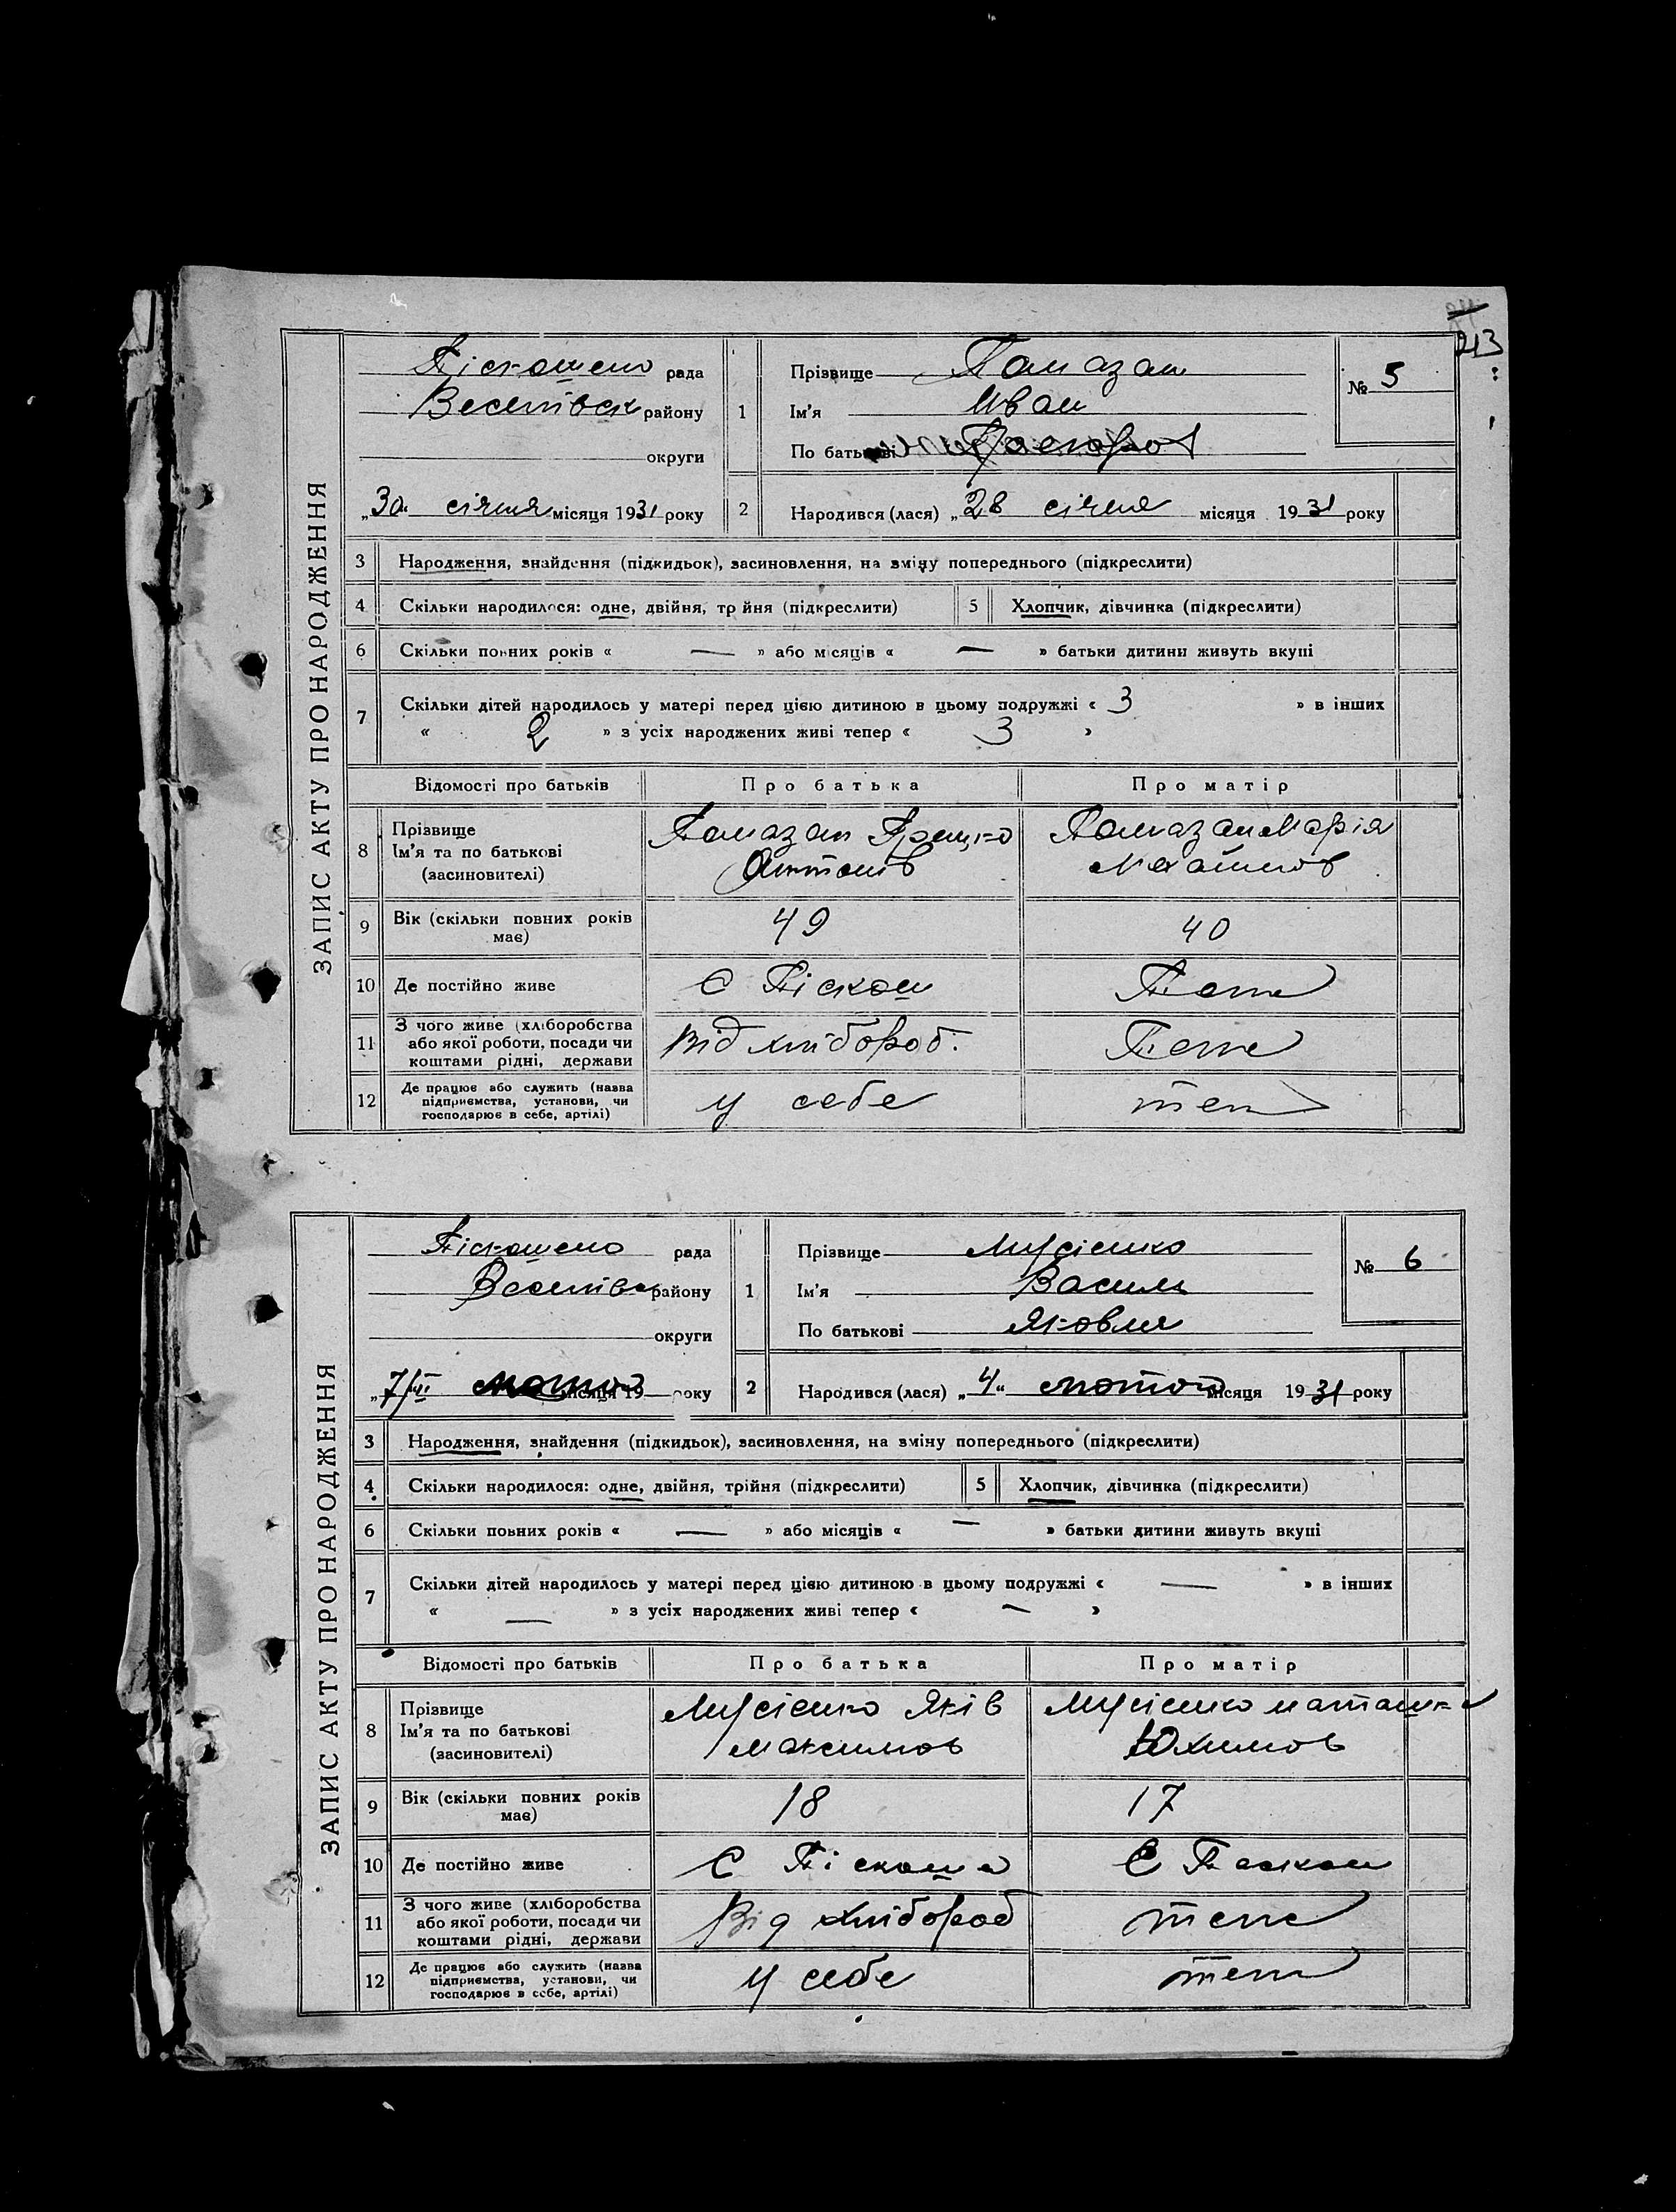 213
ЗАПИС АКТУ ПРО НАРОДЖЕННЯ
Піскошено рада
Веселівськ району
округи
„30“ січня місяця 1931 року
1 Прізвище Памазан
Ім'я Иван
По батькові
№ 5
2 Народився (лася) „28 січня місяця 1931 року
3 Народження, знайдення (підкидьок), засиновлення, на зміну попереднього (підкреслити)
4 Скільки народилося: одне, двійня, трійня (підкреслити) 5 Хлопчик, дівчинка (підкреслити)
6 Скільки повних років « — » або місяців « — » батьки дитини живуть вкупі
7 Скільки дітей народилось у матері перед цією дитиною в цьому подружжі « 3 » в інших
« 2 » з усіх народжених живі тепер « 3 »
Відомості про батьків Про батька Про матір
8 Прізвище Ім'я та по батькові (засновителі) Памазан Грицко Антонів Памазан Марія
9 Вік (скільки повних років має) 49 40
10 Де постійно живе С Піскош Теж
11 З чого живе (хліборобства або якої роботи, посади чи коштами рідні, держави Від хлібороб. Теж
12 Де працює або служить (назва підприємства, установи, чи господарює в себе, артілі) у себе теж
ЗАПИС АКТУ ПРО НАРОДЖЕННЯ
Піскошено рада
Веселівськ району
округи
„7/ІІІ місяця 19 року
1 Прізвище Мусієнко
Ім'я Василь
По батькові Яковля
№ 6
2 Народився (лася) „4“ лютого місяця 1931 року
3 Народження, знайдення (підкидьок), засиновлення, на зміну попереднього (підкреслити)
4 Скільки народилося: одне, двійня, трійня (підкреслити) 5 Хлопчик, дівчинка (підкреслити)
6 Скільки повних років « — » або місяців « — » батьки дитини живуть вкупі
7 Скільки дітей народилось у матері перед цією дитиною в цьому подружжі « — » в інших
« — » з усіх народжених живі тепер « — »
Відомості про батьків Про батька Про матір
8 Прізвище Ім'я та по батькові (засиновителі) Мусієнко Яків Максимов Мусієнко Наташка Юхимов
9 Вік (скільки повних років має) 18 17
10 Де постійно живе С Піскоша С Піскош
11 З чого живе (хліборобства або якої роботи, посади чи коштами рідні, держави Від хлібороб теж
12 Де працює або служить (назва підприємства, установи, чи господарює в себе, артілі) у себе теж